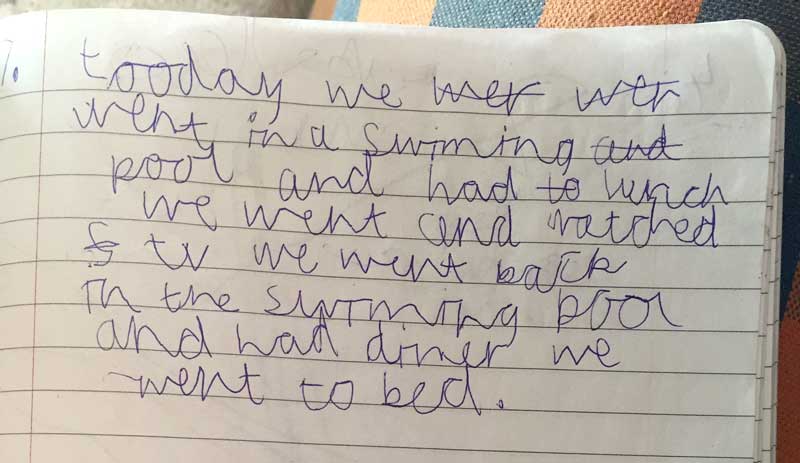 7. tooday we mer wer
went in a swiming and
pool and had to lunch
we went and watched
tv we went back
in the swiming pool
and had diner we
went to bed.